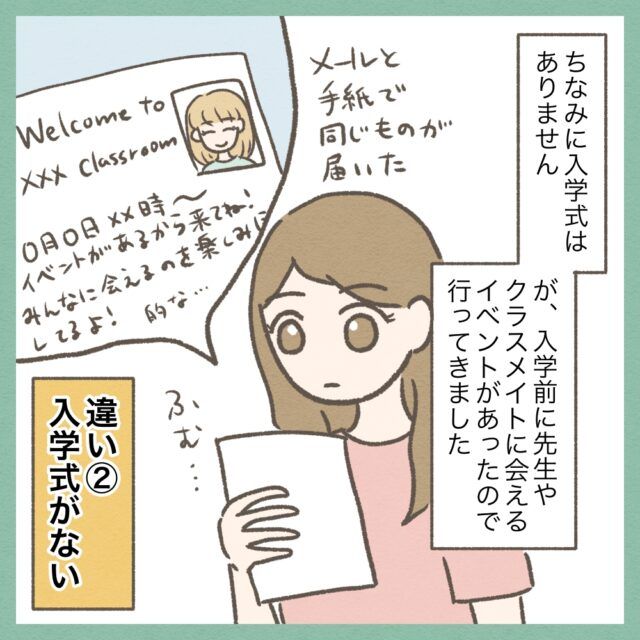 ちなみに入学式は
ありません
が、入学前に先生や
クラスメイトに会える
イベントがあったので
行ってきました
メールと
手紙で
同じものが
届いた
Welcome to
xxx Classroom
〇月〇日 xx時〜
イベントがあるから来てね!
みんなに会えるのを楽しみに
してるよ!
的な…
ふむ…
違い②
入学式がない